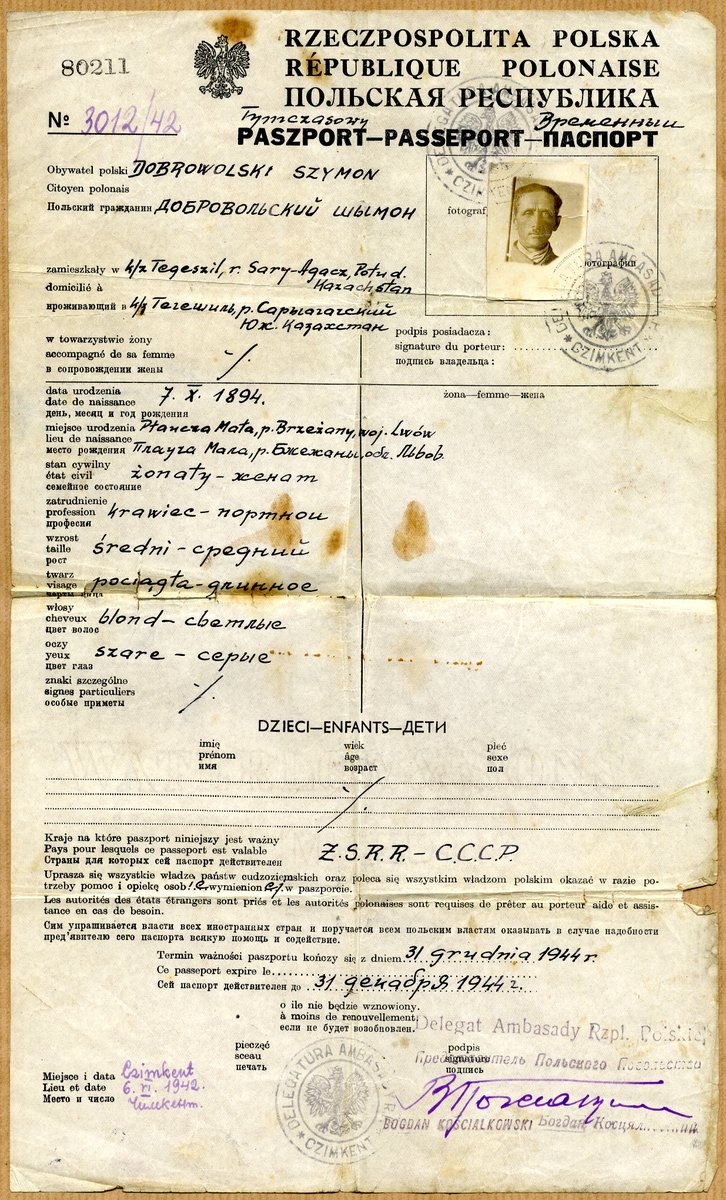 80211
RZECZPOSPOLITA POLSKA
RÉPUBLIQUE POLONAISE
ПОЛЬСКАЯ РЕСПУБЛИКА
№ 3012/42
Tymczasowy Временный
PASZPORT—PASSEPORT—ПАСПОРТ
Obywatel polski DOBROWOLSKI SZYMON
Citoyen polonais
Польский гражданин ДОБРОВОЛЬСКИЙ ШЫМОН
fotograf
фотографии
DELEGATURA AMBASADY
CZIMKENT
zamieszkały w k/z Tegeszil, r. Sary-Agacz, Połud.
Kazachstan
domicilié à
проживающий в к/з Тегешиль, р. Сарыагачский
Юж. Казахстан
w towarzystwie żony
accompagné de sa femme
в сопровождении жены
podpis posiadacza:
signature du porteur:
подпись владельца:
data urodzenia
date de naissance 7. X. 1894.
день, месяц и год рождения
żona—femme—жена
miejsce urodzenia Płaucza Mała, p. Brzeżany, woj. Lwów
lieu de naissance
место рождения Плауча Мала, р. Бжежаны, обл. Львов.
stan cywilny
état civil żonaty - женат
семейное состояние
zatrudnienie
profession krawiec - портной
професия
wzrost
taille średni - средний
рост
twarz
visage pociągła - длинное
черты лица
włosy
cheveux blond - светлые
цвет волос
oczy
yeux szare - серые
цвет глаз
znaki szczególne
signes particuliers
особые приметы
DZIECI—ENFANTS—ДЕТИ
imię wiek płeć
prénom âge sexe
имя возраст пол
Kraje na które paszport niniejszy jest ważny
Pays pour lesquels ce passeport est valable Z.S.R.R. - С.С.С.Р.
Страны для которых сей паспорт действителен
Uprasza się wszystkie władze państw cudzoziemskich oraz poleca się wszystkim władzom polskim okazać w razie potrzeby pomoc i opiekę osobie wymienionej w paszporcie.
Les autorités des états étrangers sont priés et les autorités polonaises sont requises de prêter au porteur aide et assistance en cas de besoin.
Сим упрашивается власти всех иностранных стран и поручается всем польским властям оказывать в случае надобности
пред'явителю сего паспорта всякую помощь и содействие.
Termin ważności paszportu kończy się z dniem 31 grudnia 1944 r.
Ce passeport expire le
Сей паспорт действителен до 31 декабря 1944 г.
o ile nie będzie wznowiony.
à moins de renouvellement.
если не будет возобновлен.
Delegat Ambasady Rzpl. Polskiej
Представитель Польского Посольства
pieczęć podpis
sceau signature
печать подпись
Miejsce i data Czimkent
Lieu et date 6. VI. 1942.
Место и число Чимкент.
DELEGATURA AMBASADY
CZIMKENT
BOGDAN KOŚCIALKOWSKI Богдан